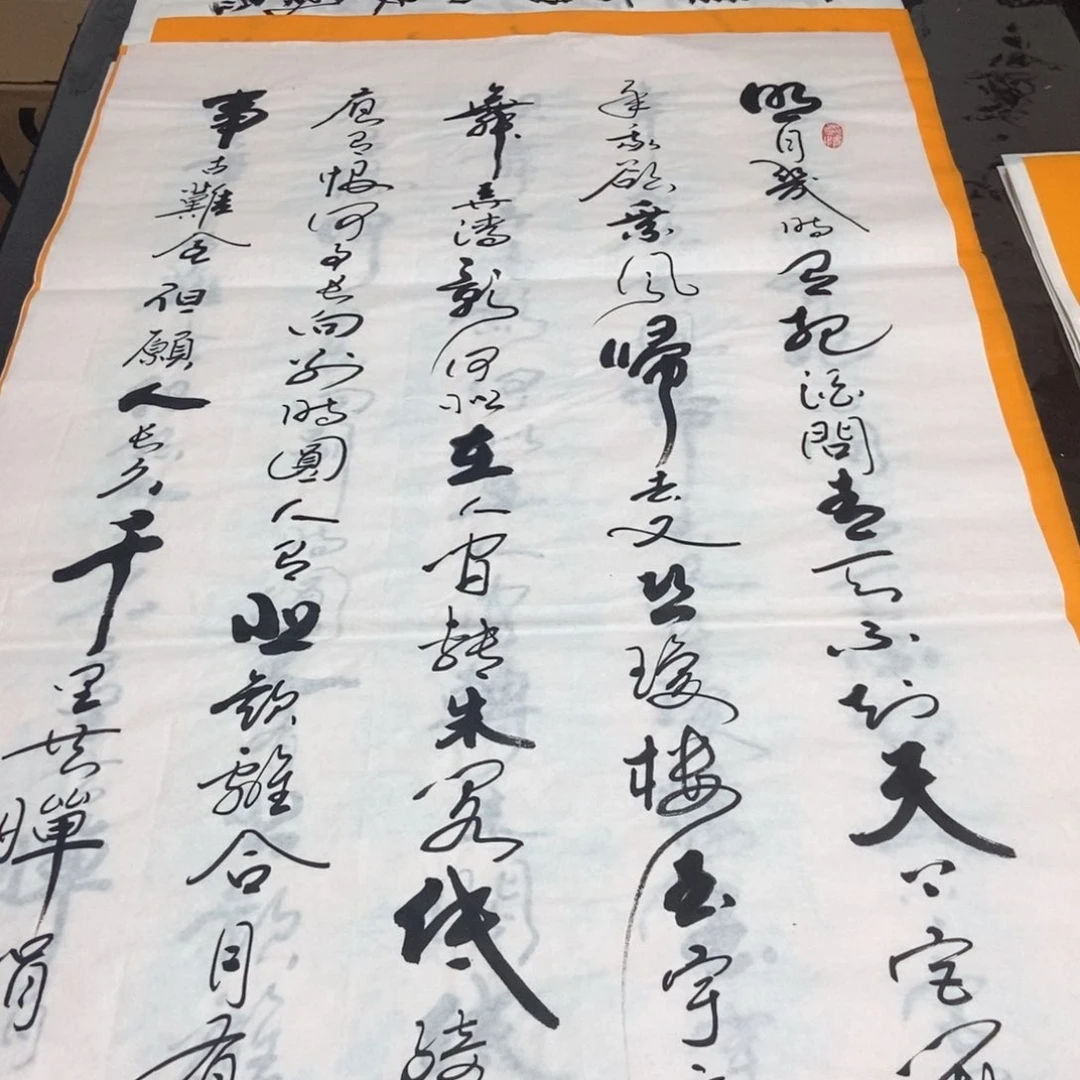 明月幾時有把酒問青天不知天上宮
年我欲乘風歸去又恐瓊樓玉宇
舞弄清影何似在人間轉朱閣低綺
應有恨何事長向別時圓人有悲歡離合月有
事古難全但願人長久千里共嬋娟